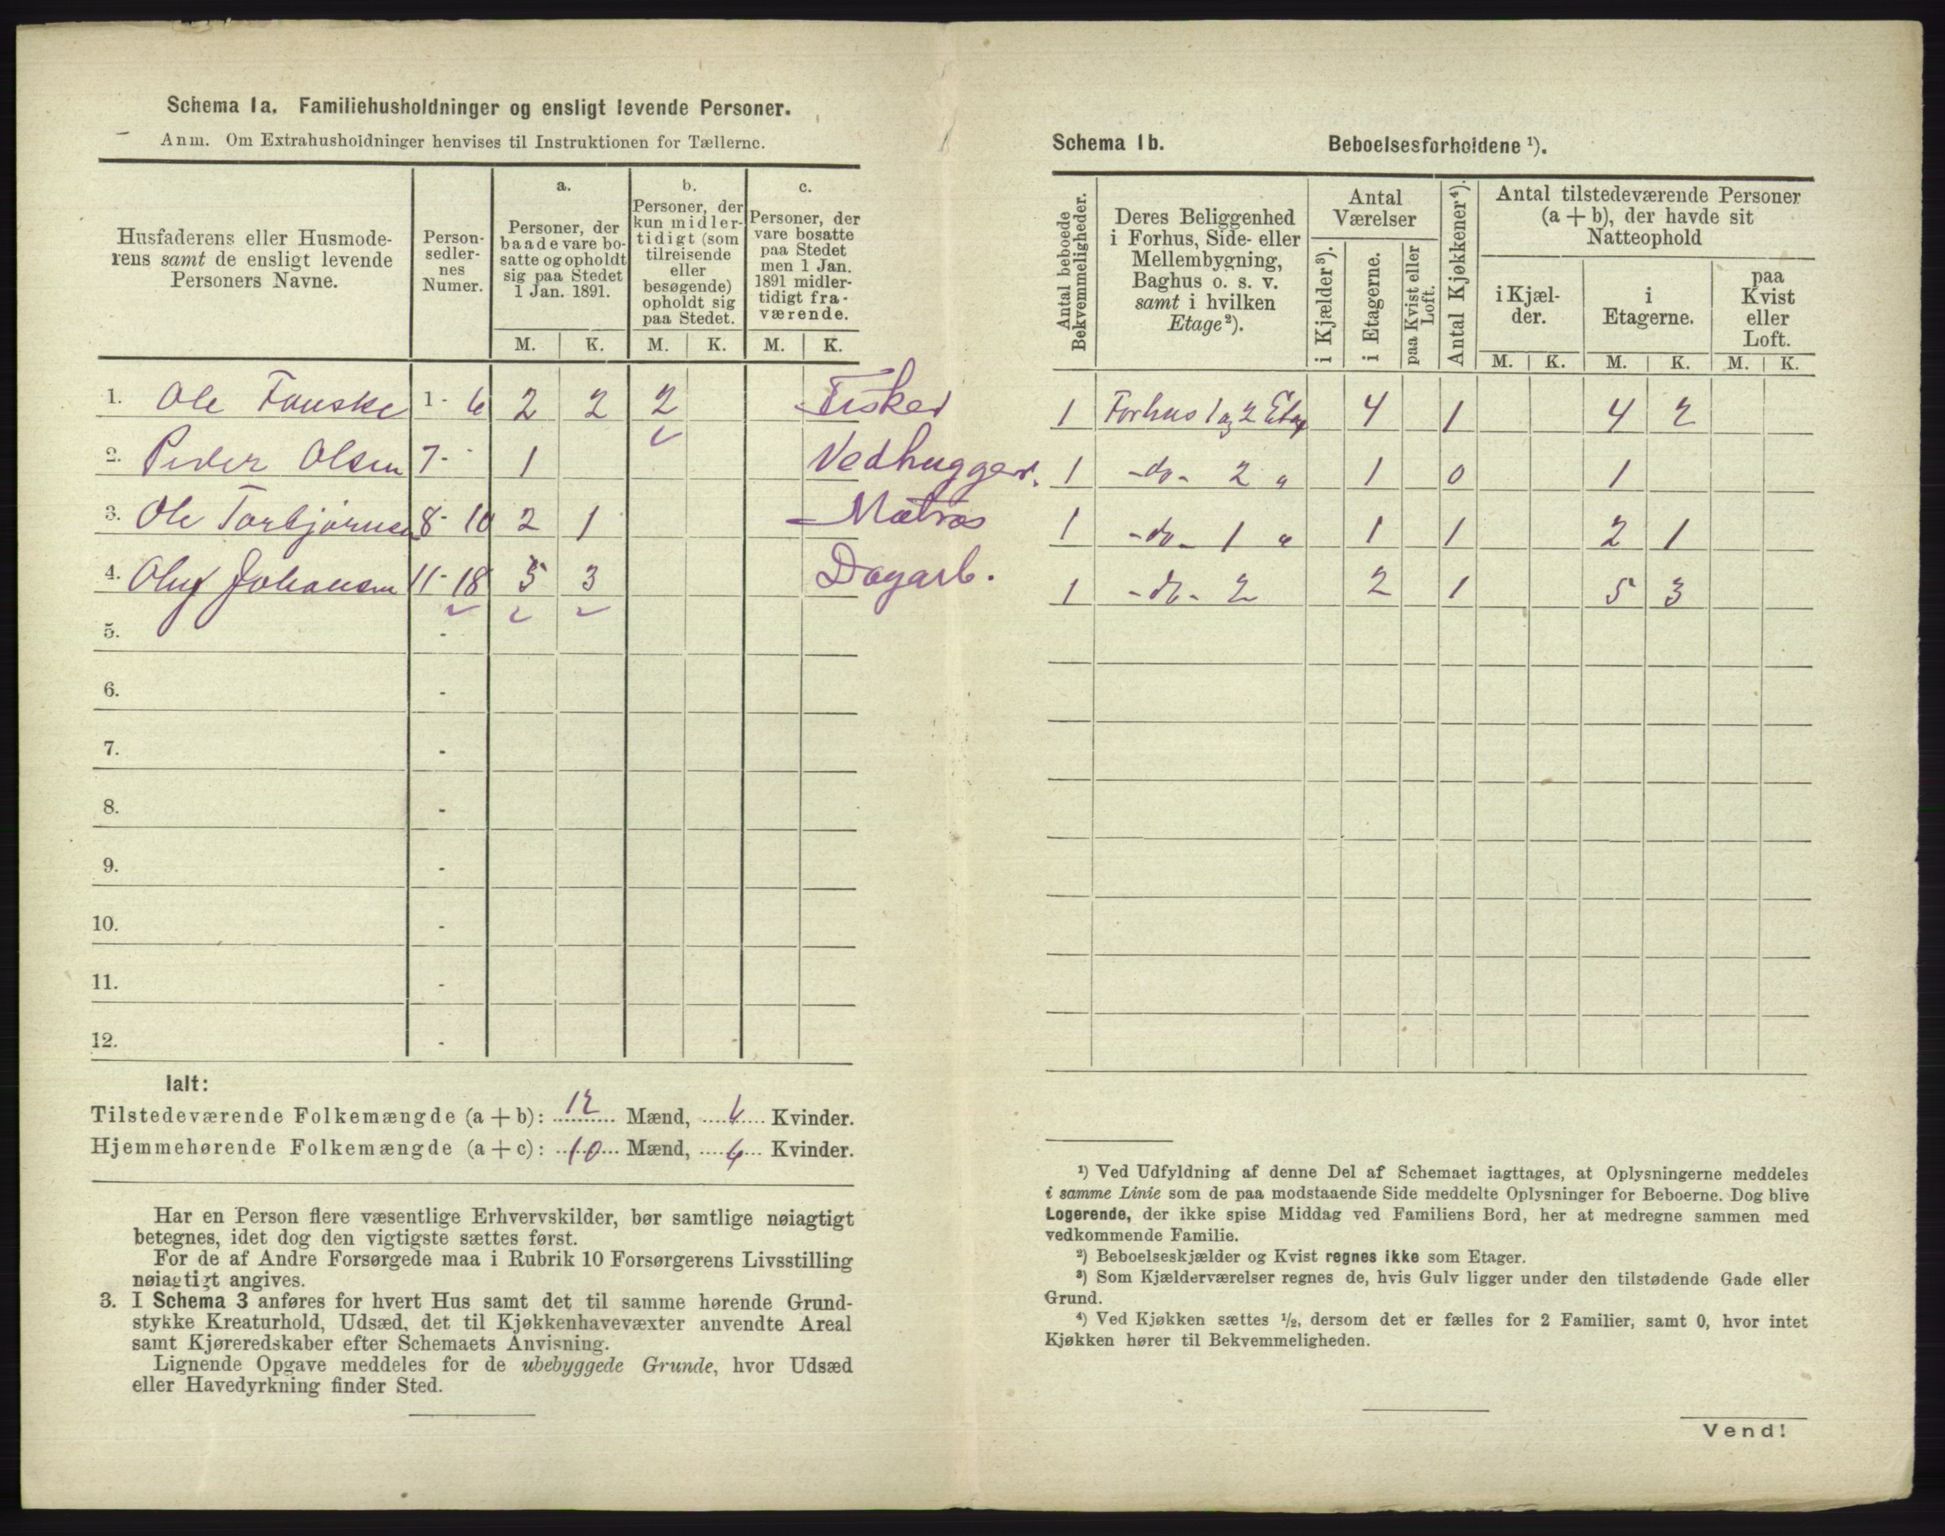 Schema 1a. Familiehusholdninger og ensligt levende Personer.
Anm. Om Extrahusholdninger henvises til Instruktionen for Tællerne.
Husfaderens eller Husmode-
rens samt de ensligt levende
Personers Navne.
Person-
sedler-
nes
Numer.
a.
Personer, der
baade vare bo-
satte og opholdt
sig paa Stedet
1 Jan. 1891.
b.
Personer, der
kun midler-
tidigt (som
tilreisende
eller
besøgende)
opholdt sig
paa Stedet.
c.
Personer, der
vare bosatte
paa Stedet
men 1 Jan.
1891 midler-
tidigt fra-
værende.
M. K. M. K. M. K.
1. Ole Fauske 1 - 6 2 2 2 Fisker
2. Peder Olsen 7 - 1 Vedhugger.
3. Ole Torbjørnsen 8 - 10 2 1 Matros
4. Oluf Johansen 11 - 18 5 3 Dagarb.
5. -
6. -
7. -
8. -
9. -
10. -
11. -
12. -
Ialt:
Tilstedeværende Folkemængde (a + b): 12 Mænd, 6 Kvinder.
Hjemmehørende Folkemængde (a + c): 10 Mænd, 6 Kvinder.
Har en Person flere væsentlige Erhvervskilder, bør samtlige nøiagtigt
betegnes, idet dog den vigtigste sættes først.
For de af Andre Forsørgede maa i Rubrik 10 Forsørgerens Livsstilling
nøiagtigt angives.
3. I Schema 3 anføres for hvert Hus samt det til samme hørende Grund-
stykke Kreaturhold, Udsæd, det til Kjøkkenhavevæxter anvendte Areal
samt Kjøreredskaber efter Schemaets Anvisning.
Lignende Opgave meddeles for de ubebyggede Grunde, hvor Udsæd
eller Havedyrkning finder Sted.
Schema 1b. Beboelsesforholdene ¹).
Antal beboede
Bekvemmeligheder.
Deres Beliggenhed
i Forhus, Side- eller
Mellembygning,
Baghus o. s. v.
samt i hvilken
Etage²).
Antal
Værelser
i Kjælder³).
i Etagerne.
paa Kvist eller
Loft.
Antal Kjøkkener⁴).
Antal tilstedeværende Personer
(a + b), der havde sit
Natteophold
i Kjæl-
der.
i
Etagerne.
paa
Kvist
eller
Loft.
M. K. M. K. M. K.
1 Forhus 1 og 2 Etag 4 1 4 2
1 -do- 2 " 1 0 1
1 -do- 1 " 1 1 2 1
1 -do- 2 2 1 5 3
¹) Ved Udfyldning af denne Del af Schemaet iagttages, at Oplysningerne meddeles
i samme Linie som de paa modstaaende Side meddelte Oplysninger for Beboerne. Dog blive
Logerende, der ikke spise Middag ved Familiens Bord, her at medregne sammen med
vedkommende Familie.
²) Beboelseskjælder og Kvist regnes ikke som Etager.
³) Som Kjælderværelser regnes de, hvis Gulv ligger under den tilstødende Gade eller
Grund.
⁴) Ved Kjøkken sættes ½, dersom det er fælles for 2 Familier, samt 0, hvor intet
Kjøkken hører til Bekvemmeligheden.
Vend!